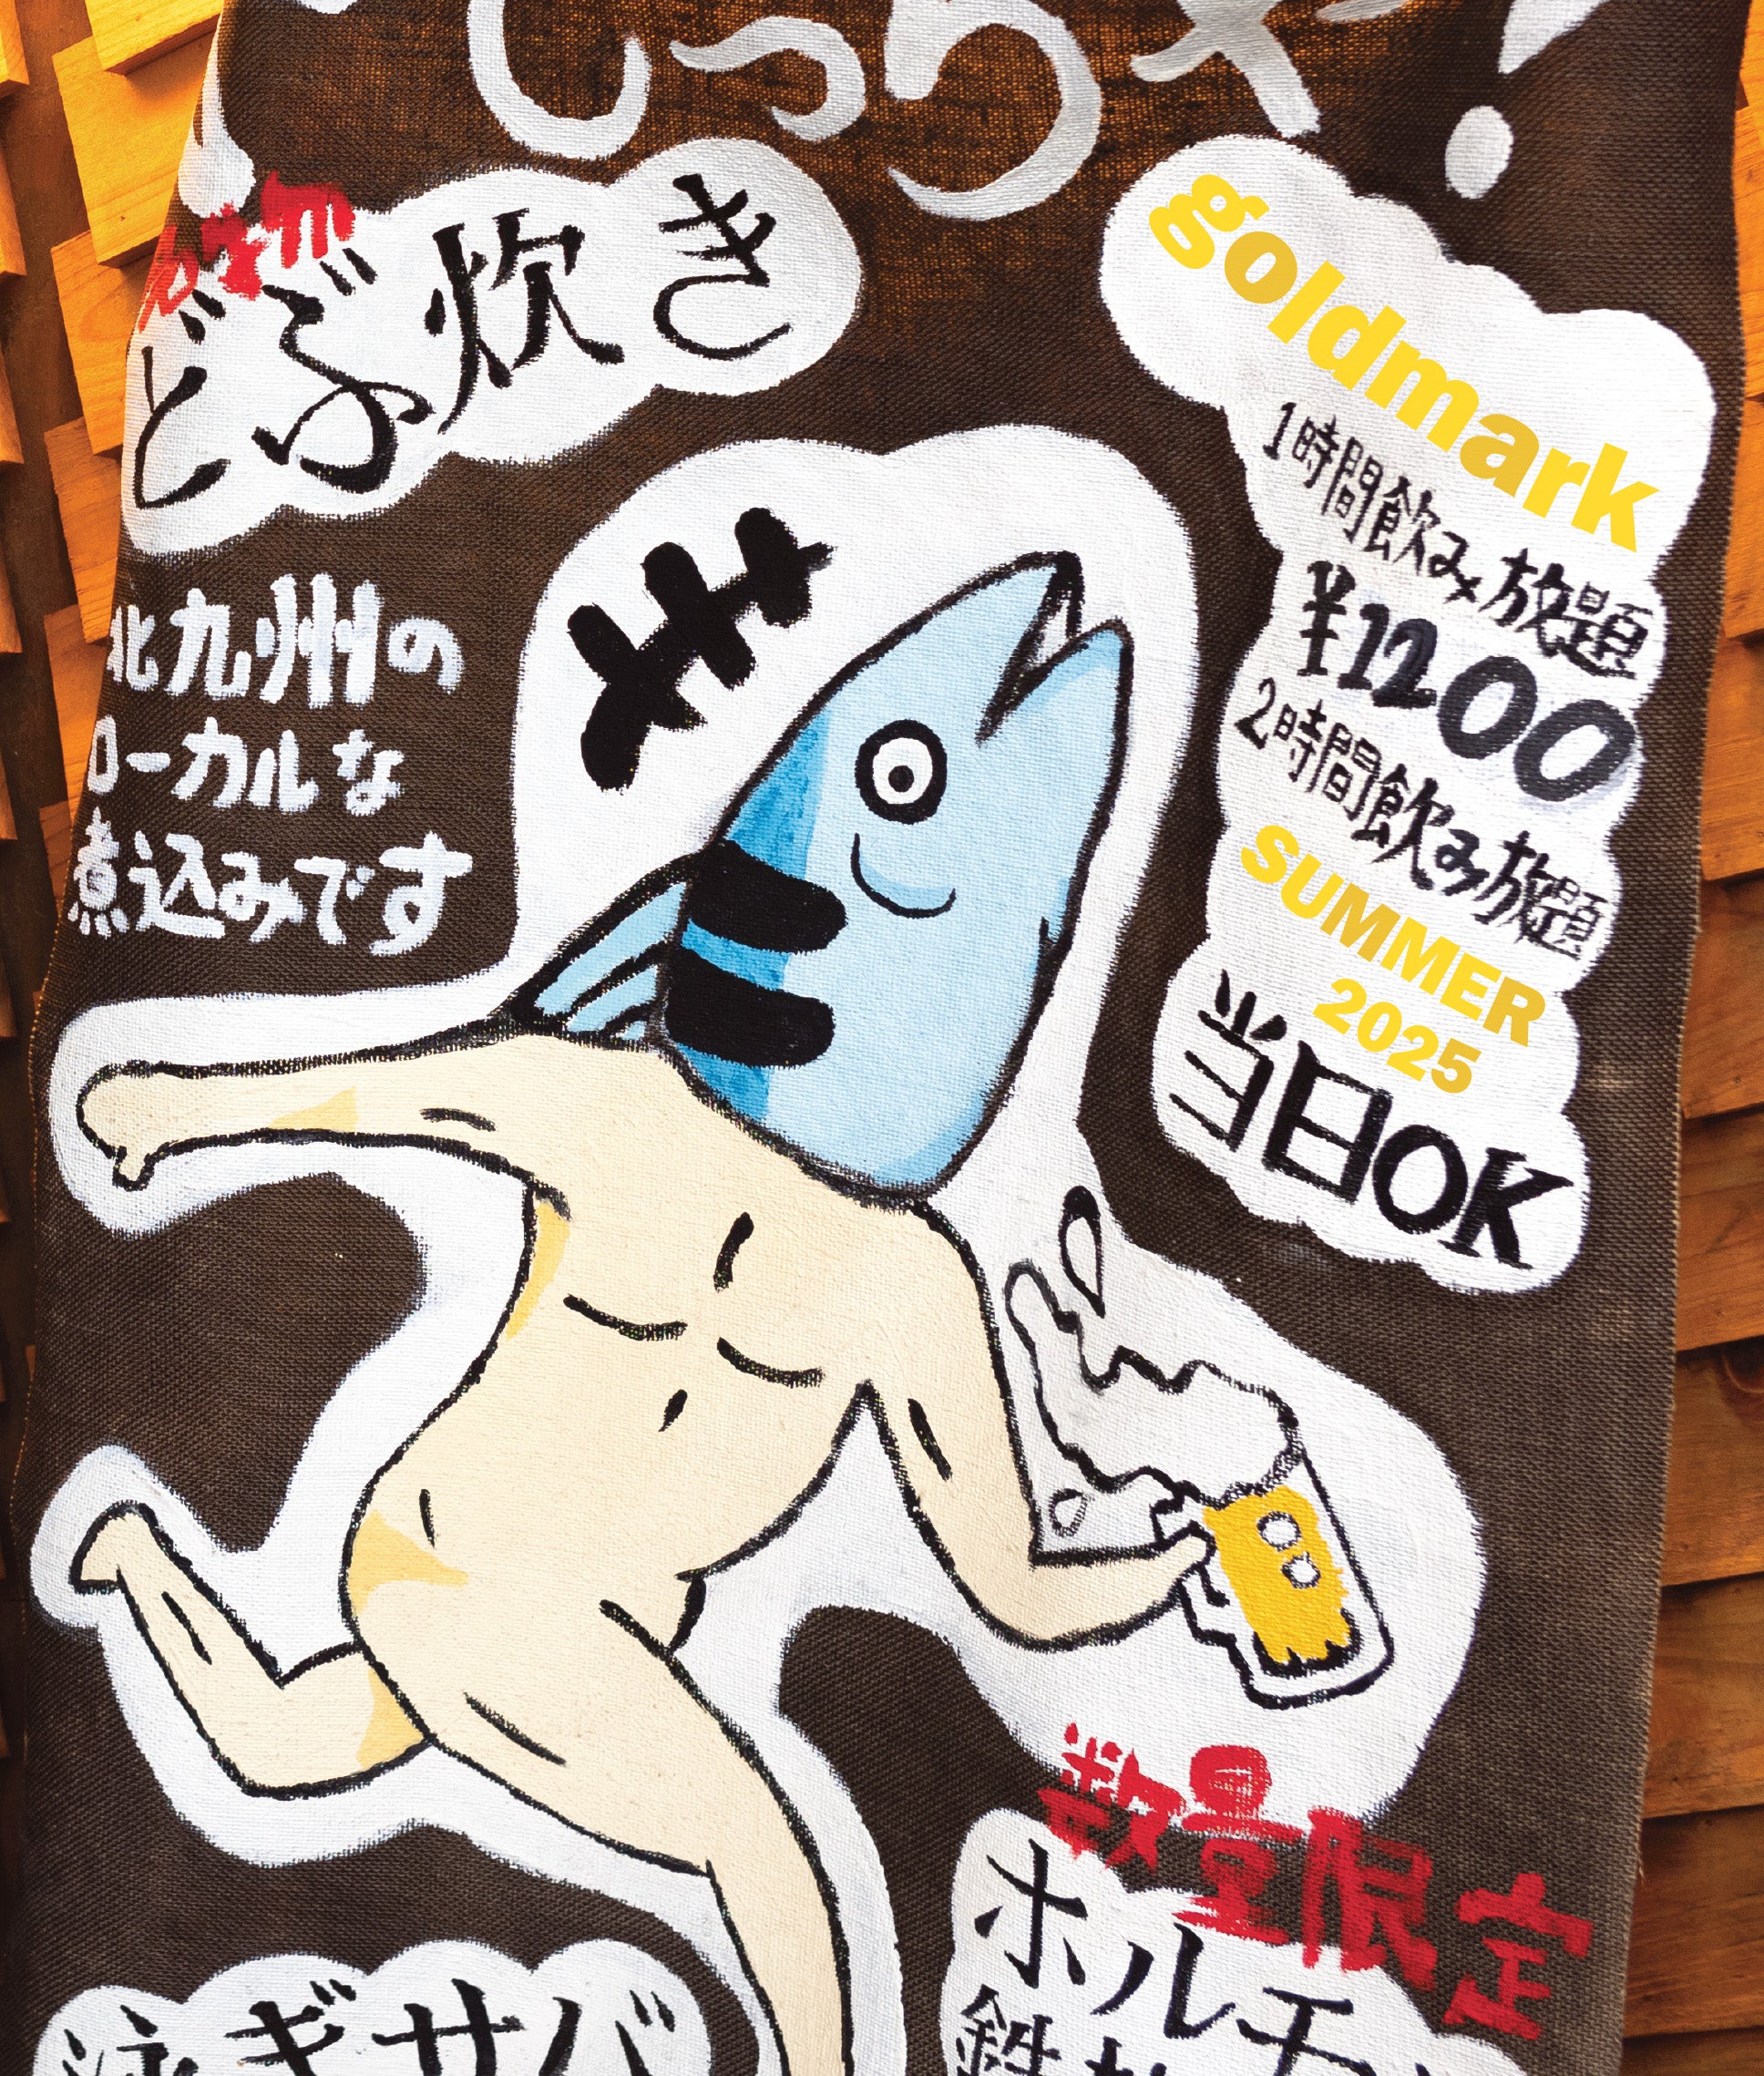 しゃい!
どぶ炊き
北九州の
ローカルな
煮込みです
goldmark
1時間飲み放題
¥1200
2時間飲み放題
SUMMER
2025
当日OK
数量限定
ホルモン
泳ギサバ